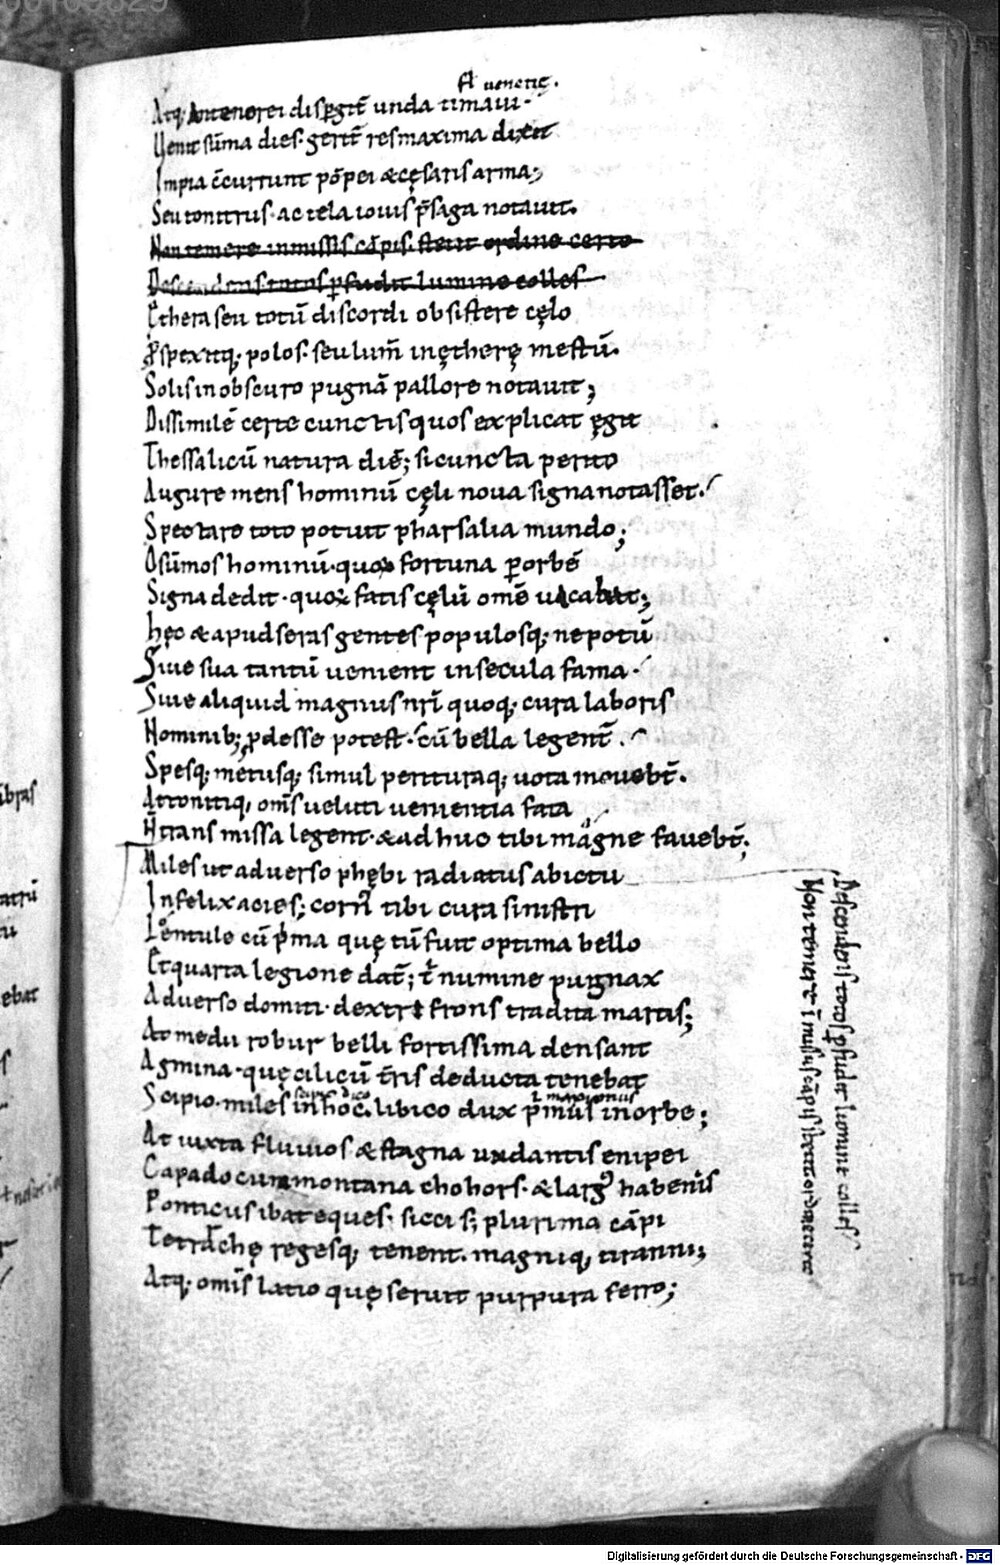 00109829
fł uenetię.
Atq; Antenorei disp̱git̄ unda timaui·
Uenit sūma dies· gerit̄ res maxima dixit
Impia c̄currunt pōpei & cęsaris arma;
Seu tonitrus· ac tela iouis p̄saga notauit.
Non temere inmissis cāpis· stetit ordine certo
Descendens totos ꝑfudit lumine colles
Ethera seu totū discordi obsistere cęlo
Ꝓspexitq; polos· seu lum̄ in ęthere mestū.
Solis in obscuro pugnā pallore notauit;
Dissimilē certe cunctis quos explicat ęgit
Thessalicū natura diē; si cuncta perito
Augure mens hominū cęli noua signa notasset.
Spectare toto potuit pharsalia mundo;
O sūmos hominū· quoꝝ fortuna ꝑ orbē
Signa dedit· quoꝝ fatis cęlū omē uacabat;
Hęc & apud seras gentes populosq; nepotū
Siue sua tantū uenient in secula fama·
Siue aliquid magnus nrī quoq; cura laboris
Hominib; ꝓdesse potest· cū bella legent̄.
Spesq; metusq; simul perituraq; uota mouebt̄.
Attonitiq; om̄s ueluti uenientia fata
N̄ transmissa legent· & adhuc tibi magne fauebt̄;
Miles ut aduerso phębi radiatus ab ictu
Infelix acies; corn̄ tibi cura sinistri
Lentule cū p̄ma quę tū fuit optima bello
Et quarta legione dat̄; t̄ numine pugnax
Aduerso domiti· dextri frons tradita martis;
At medii robur belli fortissima densant
Agmina· quę cilicū t̄ris deducta tenebat
Scipio· miles in hoc· libico dux p̄mus in orbe;
At iuxta fluuios & stagna undantis enipei
Capadocum montana chohors· & largꝰ habenis
Ponticus ibat eques· sicci s; plurima cāpi
Tetrarchę regesq; tenent· magniq; tiranni;
Atq; om̄s latio quę seruit purpura ferro;
Descendens totos ꝑfudit lumine colles
Non temere ī missus cāpis stetit ordine certo
Digitalisierung gefördert durch die Deutsche Forschungsgemeinschaft - DFG